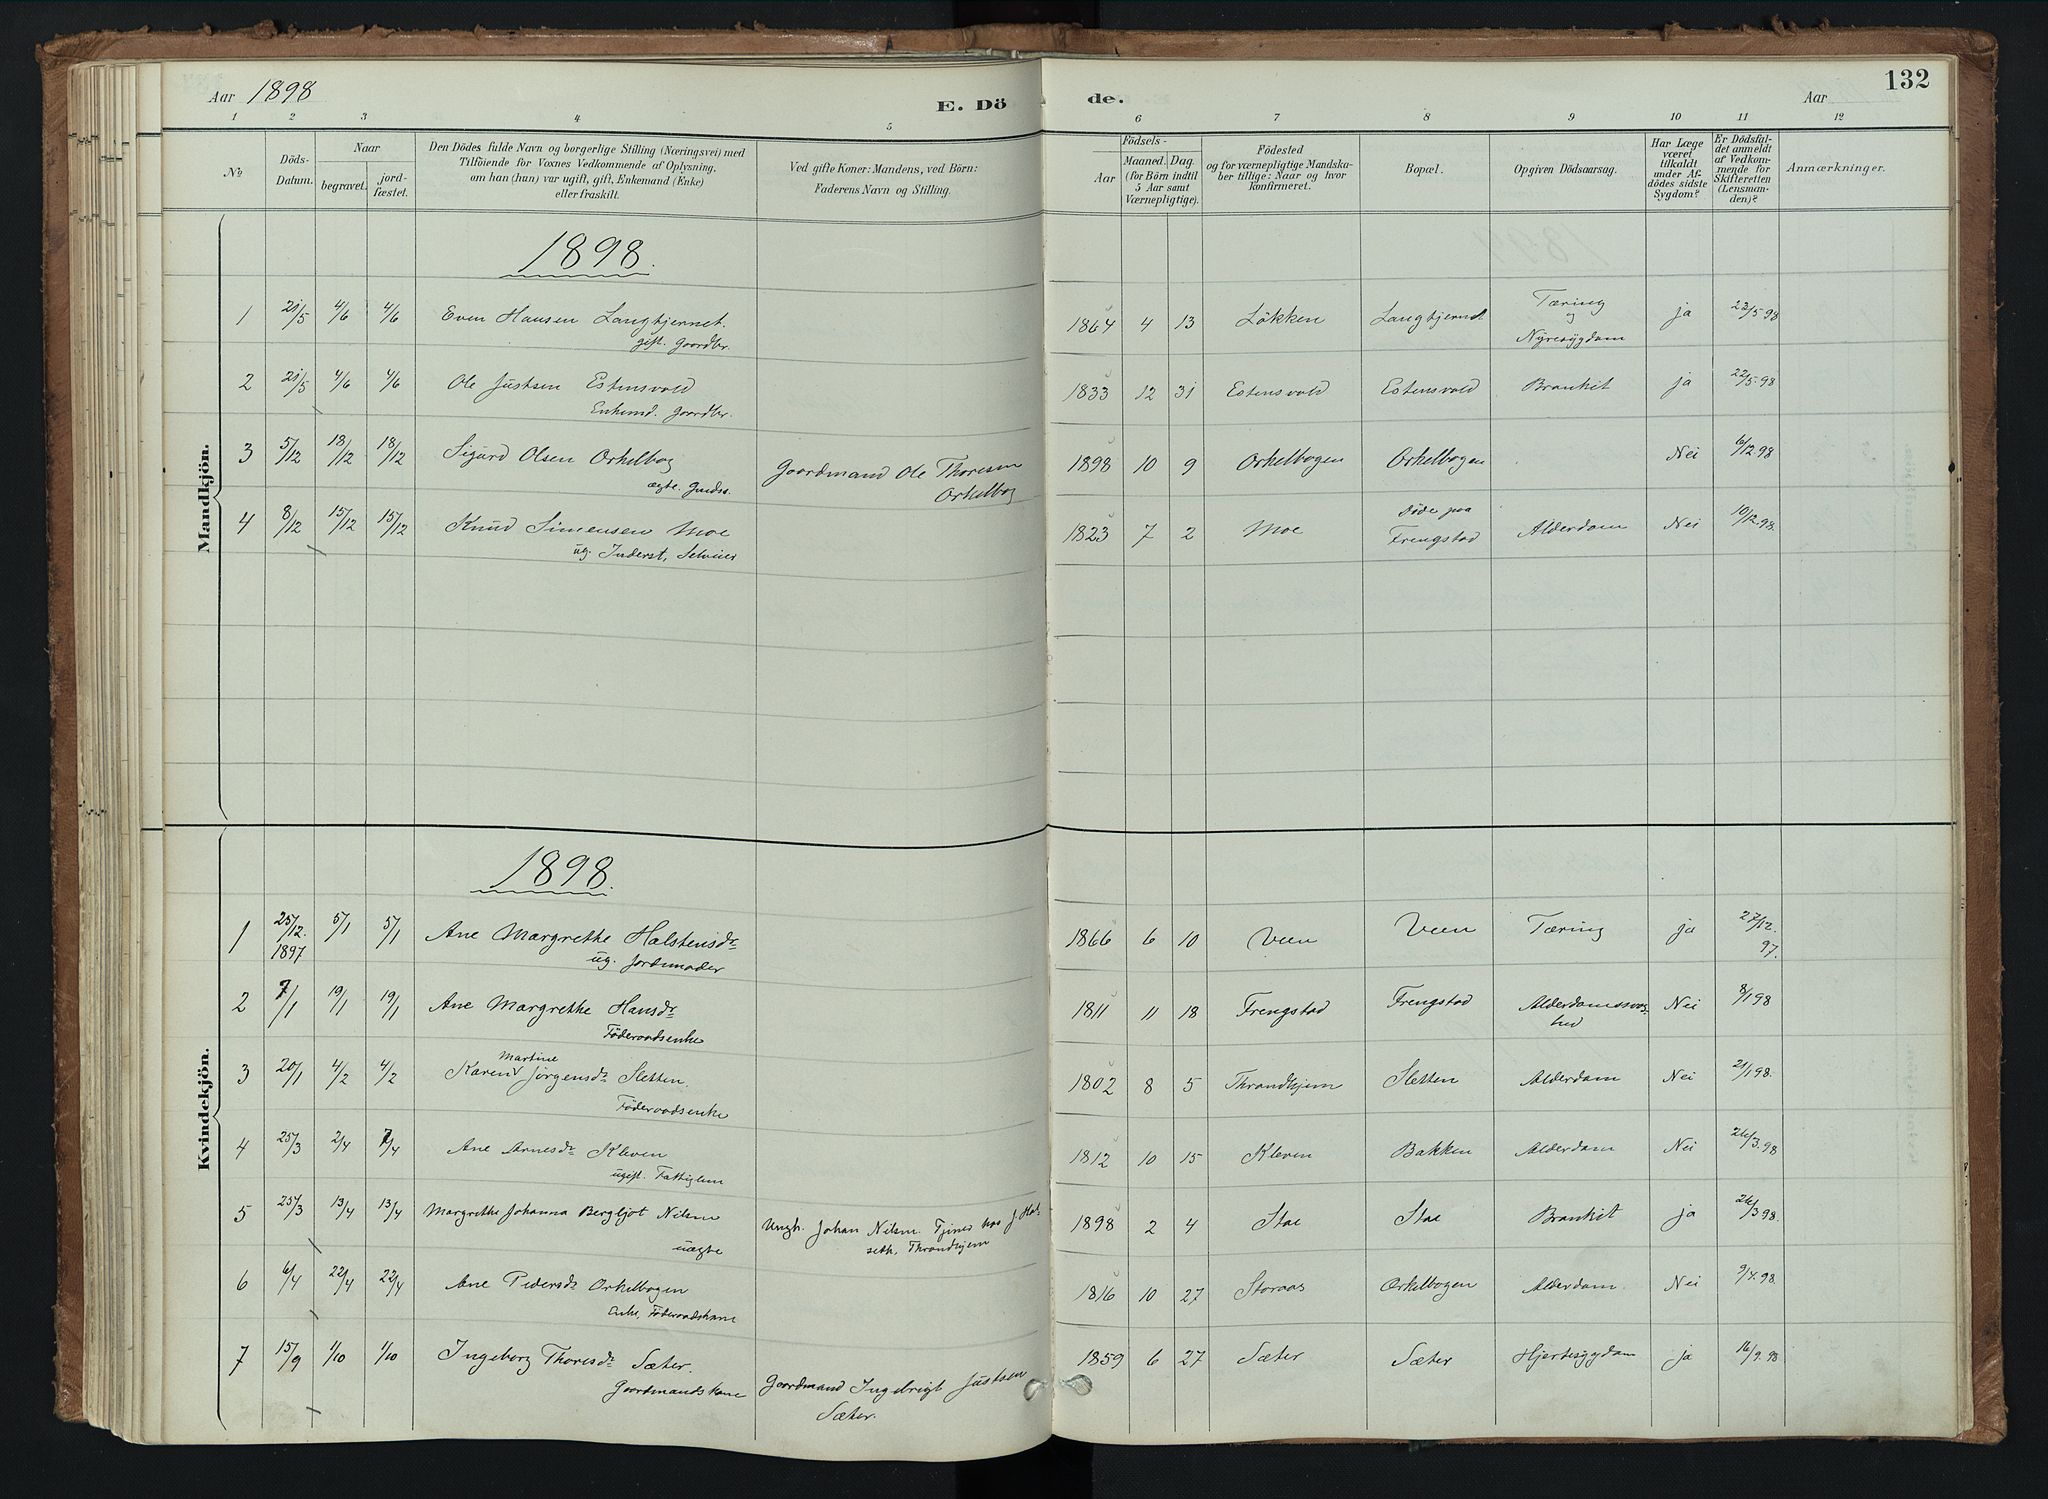 Aar 1898
E. Dö
de.
Aar
132
1 2 3 4 5 6 7 8 9 10 11 12
No
Döds-Datum.
Naar
begravet.
jord-fæstet.
Den Dödes fulde Navn og borgerlige Stilling (Næringsvei) med
Tilföiende for Voxnes Vedkommende af Oplysning,
om han (hun) var ugift, gift, Enkemand (Enke)
eller fraskilt.
Ved gifte Koner: Mandens, ved Börn:
Faderens Navn og Stilling.
Födsels-
Aar
Maaned. Dag.
(for Börn indtil
5 Aar samt
Værnepligtige).
Födested
og for værnepligtige Mandska-
ber tillige: Naar og hvor
konfirmeret.
Bopæl.
Opgiven Dödsaarsag.
Har Læge
været
tilkaldt
under Af-
dödes sidste
Sygdom?
Er Dödsfal-
det anmeldt
af Vedkom-
mende for
Skifteretten
(Lensman-
den)?
Anmærkninger.
Mandkjön.
1898.
1 21/5 4/6 4/6 Even Hansen Langkjernet. 1864 4 13 Lökken Langkjernet Tæring ja 22/5 98
gift. Gaardbr. og Nyresygdom
2 21/5 4/6 4/6 Ole Justsen Estensvold 1833 12 31 Estensvold Estensvold Brankit ja 22/5.98
Enkemd. Gaardbr.
3 5/12 18/12 18/12 Sigurd Olsen Orkelbog Gaardmand Ole Thoresen 1898 10 9 Orkelbogen Orkelbogen Nei 6/12 98
ægte. Orkelbog
4 8/12 15/12 15/12 Knud Simensen Moe 1823 7 2 Moe Döde paa Frengstad Alderdom Nei 10/12.98.
ug. Inderst,
Kvindekjön.
1898.
1 25/12. 1897 5/1 5/1 Ane Margrethe Halstensdr 1866 6 10 Veen Veen Tæring ja 27/12. 97.
ug. Jordmoder
2 7/1 19/1 19/1 Ane Margrethe Hansdr 1811 11 18 Frengstad Frengstad Alderdomssvag- Nei 8/1 98
Föderaadsenke hed
3 20/1 4/2 4/2 Karen Martine Jørgensdr Sletten. 1802 8 5 Throndhjem Sletten Alderdom Nei 21/1 98.
Föderaadsenke
4 25/3 2/4 7/4 Ane Arnesdr Kleven 1812 10 15 Kleven Bakken Alderdom Nei 26/3.98
ugift. Fattiglem
5 25/3 13/4 13/4 Margrethe Johanna Bergljot Nilsen Ungk. Johan Nilsen Tjener hos J. Hal- 1898 2 4 Stae Stae Brankit ja 26/3 98.
uægte seth, Throndhjem
6 6/4 22/4 22/4 Ane Pedersdr Orkelbogen 1816 10 27 Storaas Orkelbogen Alderdom. Nei 9/4.98.
Enke, Föderaadskone
7 15/9 1/10 1/10 Ingeborg Thoresdr Sæter. Gaardmand Ingebrigt Justsen 1859 6 27 Sæter Sæter Hjertesygdom ja 16/9.98
Gaardmandskone Sæter.